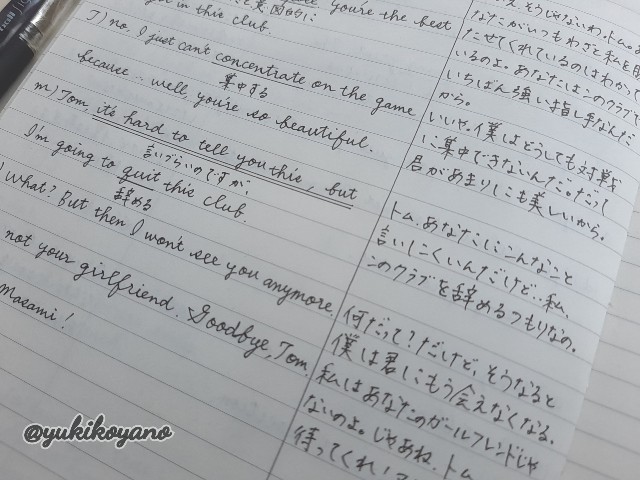 you're the best
you in this club.
T) no. I just can't concentrate on the game
集中する
because … well you're so beautiful.
m) Tom, it's hard to tell you this, but
言いづらいのですが、
I'm going to quit this club.
辞める
What? But then I won't see you anymore.
not your girlfriend. Goodbye, Tom
Masami!
そうじゃないわ。トム。
なたがいつもわざと私を
たせてくれているのはわかって
いるのよ。あなたはこのクラブで
いちばん強い指し手なんだ
から。
いいや。僕はどうしても対戦
に集中できないんだ。だって
君があまりにも美しいから。
トム、あなたにこんなこと
言いにくいんだけど‥私、
このクラブを辞めるつもりなの。
何だって?だけど、そうなると
僕は君にもう会えなくなる。
私はあなたのガールフレンドじゃ
ないのよ。じゃあね、トム
待ってくれ!
@yukikoyano